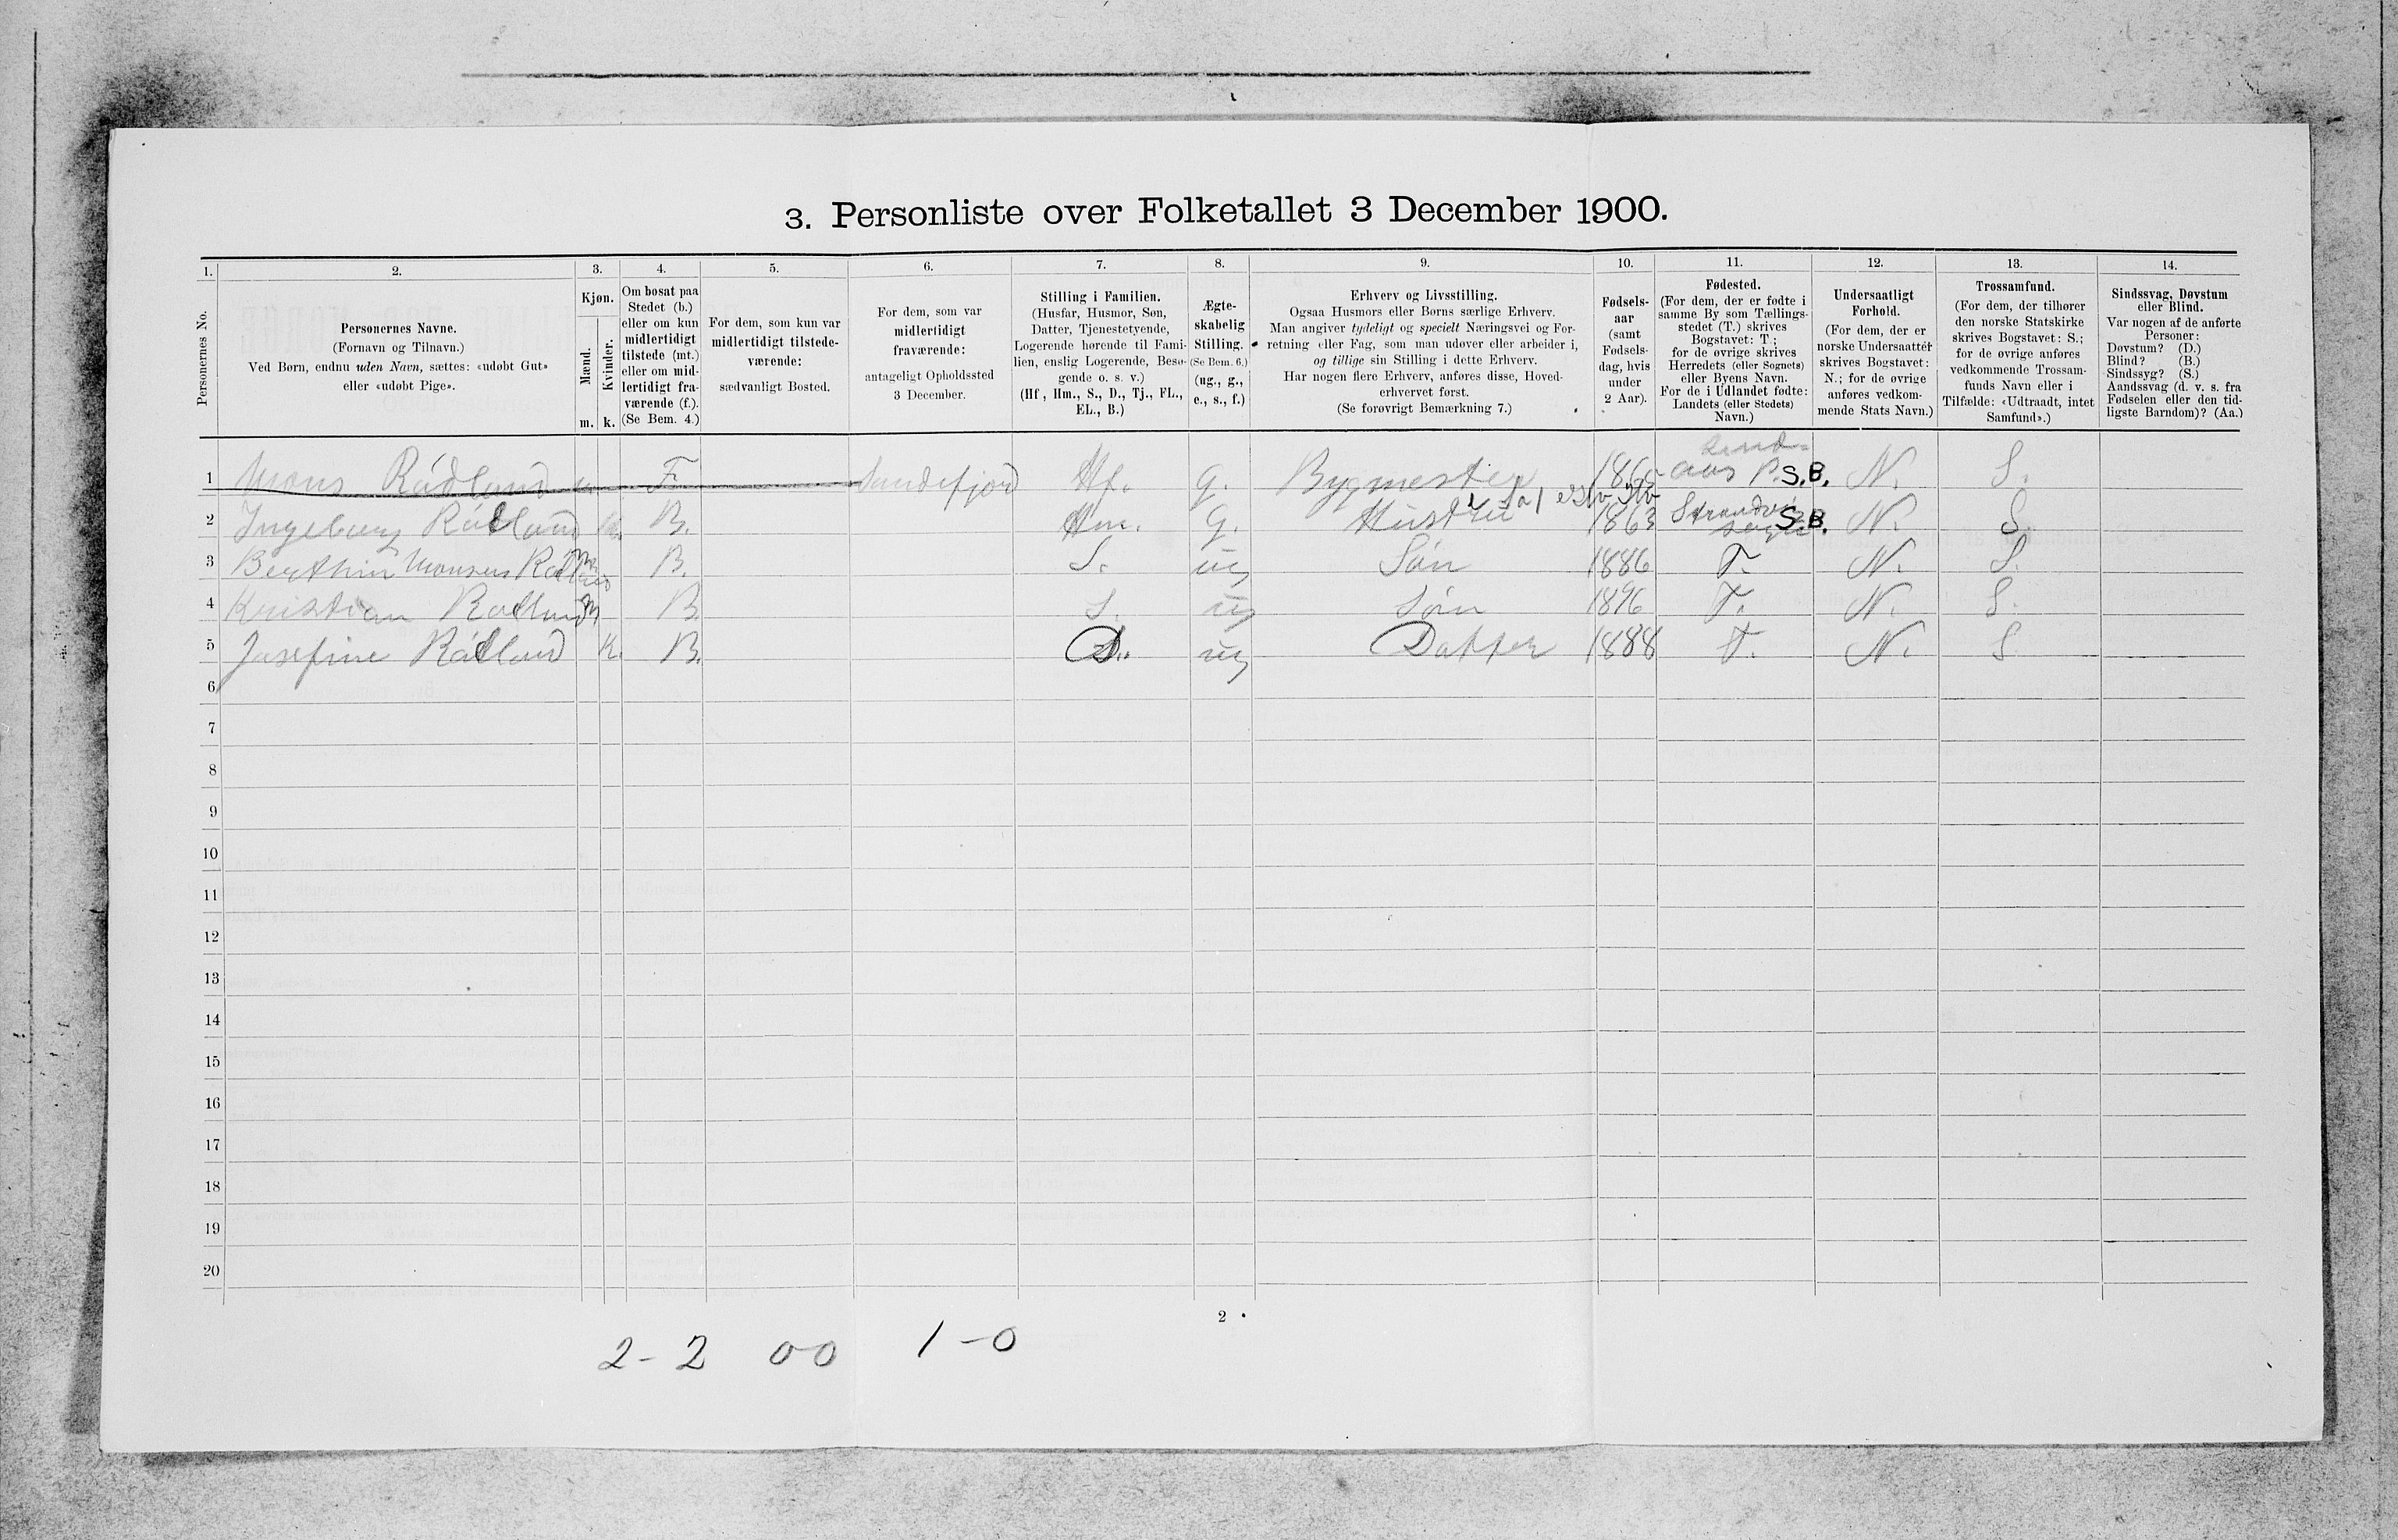 3. Personliste over Folketallet 3 December 1900.
1. 2. 3. 4. 5. 6. 7. 8. 9. 10. 11. 12. 13. 14.
Personernes No.
Personernes Navne.
(Fornavn og Tilnavn.)
Ved Børn, endnu uden Navn, sættes: «udøbt Gut»
eller «udøbt Pige».
Kjøn.
Mænd.
Kvinder.
m. k.
Om bosat paa
Stedet (b.)
eller om kun
midlertidigt
tilstede (mt.)
eller om mid-
lertidigt fra-
værende (f.).
(Se Bem. 4.)
For dem, som kun var
midlertidigt tilstede-
værende:
sædvanligt Bosted.
For dem, som var
midlertidigt
fraværende:
antageligt Opholdssted
3 December.
Stilling i Familien.
(Husfar, Husmor, Søn,
Datter, Tjenestetyende,
Logerende hørende til Fami-
lien, enslig Logerende, Besø-
gende o. s. v.)
(Hf., Hm., S., D., Tj., FL.,
EL., B.)
Ægte-
skabelig
Stilling.
(Se Bem. 6.)
(ug., g.,
e., s., f.)
Erhverv og Livsstilling.
Ogsaa Husmors eller Børns særlige Erhverv.
Man angiver tydeligt og specielt Næringsvei og For-
retning eller Fag, som man udøver eller arbeider i,
og tillige sin Stilling i dette Erhverv.
Har nogen flere Erhverv, anføres disse, Hoved-
erhvervet først.
(Se forøvrigt Bemærkning 7.)
Fødsels-
aar
(samt
Fødsels-
dag, hvis
under
2 Aar).
Fødested.
(For dem, der er fødte i
samme By som Tællings-
stedet (T.) skrives
Bogstavet: T.;
for de øvrige skrives
Herredets (eller Sognets)
eller Byens Navn.
For de i Udlandet fødte:
Landets (eller Stedets)
Navn.)
Undersaatligt
Forhold.
(For dem, der er
norske Undersaatter
skrives Bogstavet:
N.; for de øvrige
anføres vedkom-
mende Stats Navn.)
Trossamfund.
(For dem, der tilhører
den norske Statskirke
skrives Bogstavet: S.;
for de øvrige anføres
vedkommende Trossam-
funds Navn eller i
Tilfælde: «Udtraadt, intet
Samfund».)
Sindssvag, Døvstum
eller Blind.
Var nogen af de anførte
Personer:
Døvstum? (D.)
Blind? (B.)
Sindssyg? (S.)
Aandssvag (d. v. s. fra
Fødselen eller den tid-
ligste Barndom)? (Aa.)
1 Mons Rådland m F. Sandefjord Hf. g. Bygmester aas P. S.B. N. S.
2 Ingeborg Rådland k. B. Hm. g. Hustru 1863 S.B. N. S.
3 Berthin Monsen Rådland m B. S. ug Søn 1886 T. N. S.
4 Kristian Radland m B. S. ug Søn 1896 T. N. S.
5 Josefine Rådland K. B. D. ug Datter 1888 T. N. S
6
7
8
9
10
11
12
13
14
15
16
17
18
19
20
2
2-2 00 1-0